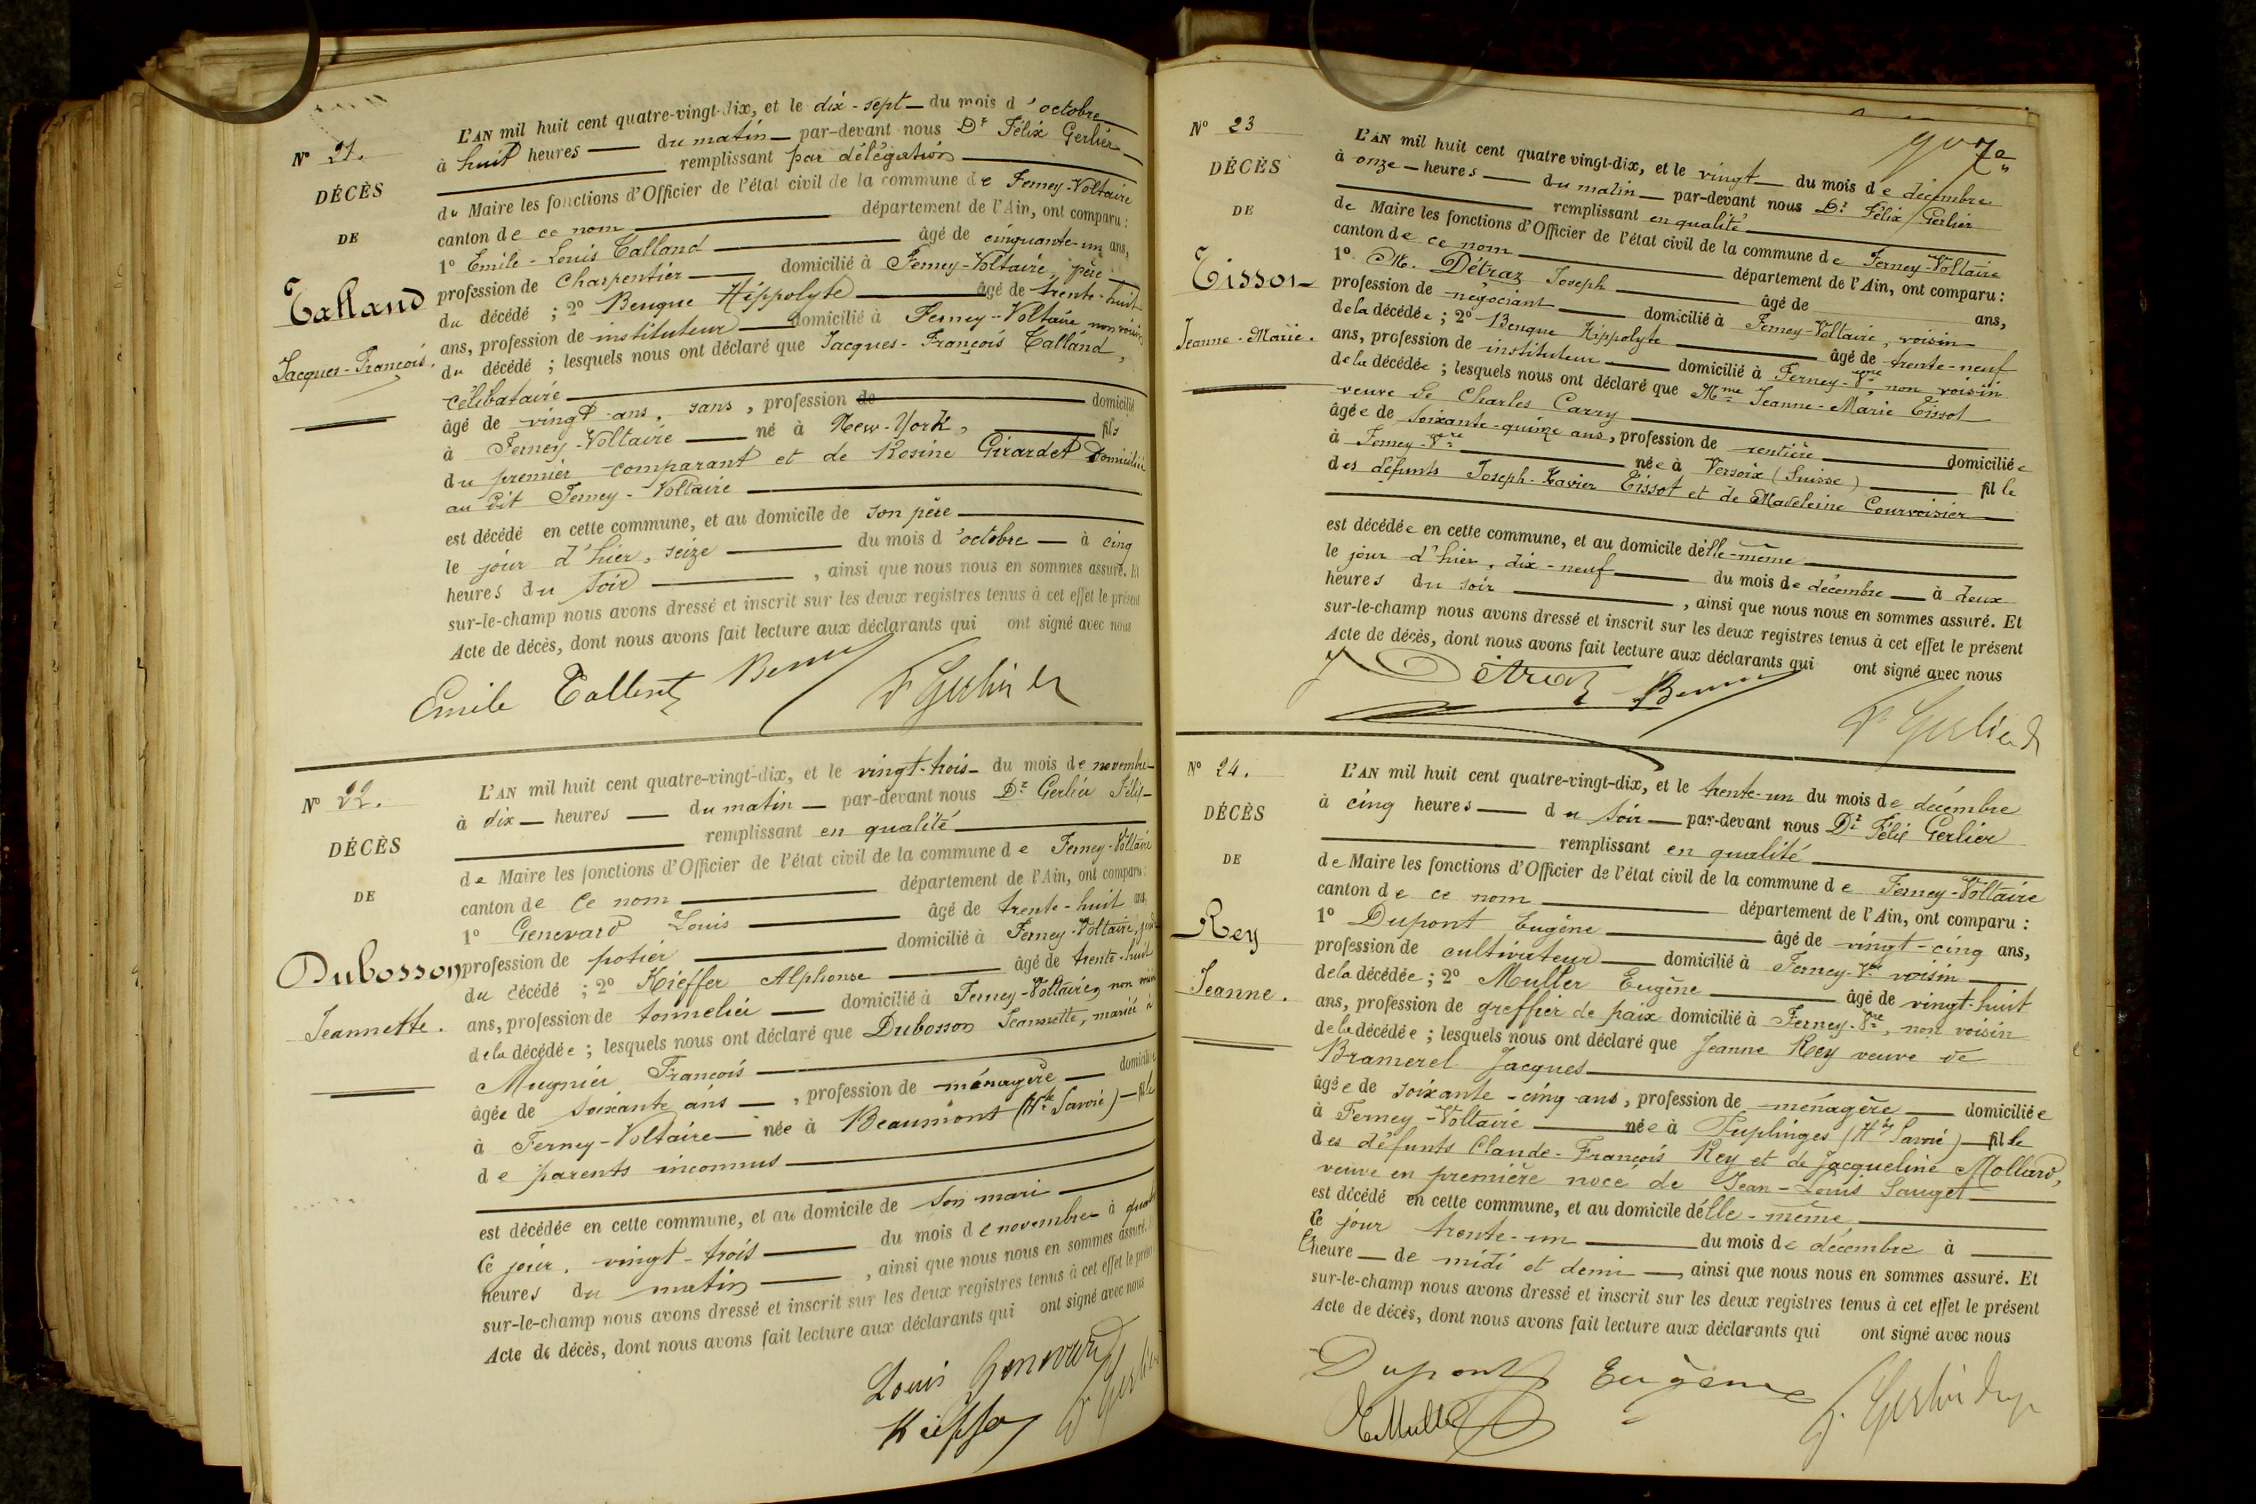 N° 21.
DÉCÈS
DE
Talland
Jacques-François.
L'AN mil huit cent quatre-vingt-dix, et le dix-sept du mois d'octobre
à huit heures du matin par-devant nous Dr Félix Gerlier
remplissant par délégation
du Maire les fonctions d'Officier de l'état civil de la commune de Ferney-Voltaire
canton de ce nom département de l'Ain, ont comparu :
1° Emile-Louis Talland âgé de cinquante-un ans,
profession de Charpentier domicilié à Ferney-Voltaire, père
du décédé ; 2° Benque Hippolyte âgé de trente-huit
ans, profession de instituteur domicilié à Ferney-Voltaire non voisin
du décédé ; lesquels nous ont déclaré que Jacques-François Talland,
célibataire
âgé de vingt ans, sans, profession de domicilié
à Ferney-Voltaire né à New-York, fils
du premier comparant et de Rosine Girardet Domiciliée
au dit Ferney-Voltaire
est décédé en cette commune, et au domicile de son père
le jour d'hier, seize du mois d'octobre à cinq
heures du soir, ainsi que nous nous en sommes assuré. Et
sur-le-champ nous avons dressé et inscrit sur les deux registres tenus à cet effet le présent
Acte de décès, dont nous avons fait lecture aux déclarants qui ont signé avec nous
Emile Tallent
N° 22.
DÉCÈS
DE
Dubosson
Jeannette.
L'AN mil huit cent quatre-vingt-dix, et le vingt-trois du mois de novembre
à dix heures du matin par-devant nous Dr Gerlier Félix
remplissant en qualité
de Maire les fonctions d'Officier de l'état civil de la commune de Ferney-Voltaire
canton de ce nom département de l'Ain, ont comparu :
1° Genevard Louis âgé de trente-huit ans,
profession de potier domicilié à Ferney-Voltaire,
du décédé ; 2° Kieffer Alphonse âgé de trente-huit
ans, profession de tonnelier domicilié à Ferney-Voltaire, non voisin
de la décédée ; lesquels nous ont déclaré que Dubosson Jeannette, mariée à
Mugnier François
âgée de soixante ans, profession de ménagère domiciliée
à Ferney-Voltaire née à Beaumont (Hte Savoie) fille
de parents inconnus
est décédée en cette commune, et au domicile de son mari
Ce jour, vingt-trois du mois de novembre à quatre
heures du matin, ainsi que nous nous en sommes assuré. Et
sur-le-champ nous avons dressé et inscrit sur les deux registres tenus à cet effet le présent
Acte de décès, dont nous avons fait lecture aux déclarants qui ont signé avec nous
Louis Genevard
Kieffer
N° 23
DÉCÈS
DE
Tissot
Jeanne-Marie.
L'AN mil huit cent quatre vingt-dix, et le vingt du mois de décembre
à onze heures du matin par-devant nous Dr Félix Gerlier
remplissant en qualité
de Maire les fonctions d'Officier de l'état civil de la commune de Ferney-Voltaire
canton de ce nom département de l'Ain, ont comparu :
1° M. Détraz Joseph âgé de ans,
profession de négociant domicilié à Ferney-Voltaire, voisin
de la décédée ; 2° Benque Hippolyte âgé de trente-neuf
ans, profession de instituteur domicilié à Ferney-Vre non voisin
de la décédée ; lesquels nous ont déclaré que Mme Jeanne-Marie Tissot
veuve de Charles Carry
âgée de soixante-quinze ans, profession de rentière domiciliée
à Ferney-Vre née à Versoix (Suisse) fille
des défunts Joseph-Xavier Tissot et de Madeleine Courvoisier
est décédée en cette commune, et au domicile d'elle-même
le jour d'hier, dix-neuf du mois de décembre à deux
heures du soir, ainsi que nous nous en sommes assuré. Et
sur-le-champ nous avons dressé et inscrit sur les deux registres tenus à cet effet le présent
Acte de décès, dont nous avons fait lecture aux déclarants qui ont signé avec nous
J Détraz
N° 24.
DÉCÈS
DE
Rey
Jeanne.
L'AN mil huit cent quatre-vingt-dix, et le trente-un du mois de décembre
à cinq heures du soir par-devant nous Dr Félix Gerlier
remplissant en qualité
de Maire les fonctions d'Officier de l'état civil de la commune de Ferney-Voltaire
canton de ce nom département de l'Ain, ont comparu :
1° Dupont Eugène âgé de vingt-cinq ans,
profession de cultivateur domicilié à Ferney-Vre voisin
de la décédée ; 2° Muller Eugène âgé de vingt-huit
ans, profession de greffier de paix domicilié à Ferney-Vre, non voisin
de la décédée ; lesquels nous ont déclaré que Jeanne Rey veuve de
Bramerel Jacques
âgée de soixante-cinq ans, profession de ménagère domiciliée
à Ferney-Voltaire née à Puplinges (Hte Savoie) fille
des défunts Claude-François Rey et de Jacqueline Mollard,
veuve en première noce de Jean-Louis Sauget
est décédé en cette commune, et au domicile d'elle-même
Ce jour trente-un du mois de décembre à
l'heure de midi et demi, ainsi que nous nous en sommes assuré. Et
sur-le-champ nous avons dressé et inscrit sur les deux registres tenus à cet effet le présent
Acte de décès, dont nous avons fait lecture aux déclarants qui ont signé avec nous
Dupont Eugène
E Muller